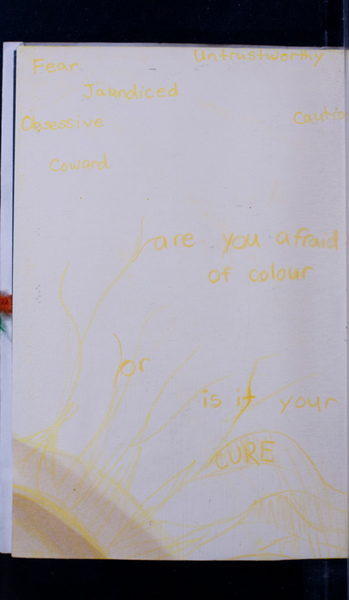 Untrustworthy
Fear
Jaundiced
Obsessive
Coward
are you afraid
of colour
or
is it your
CURE